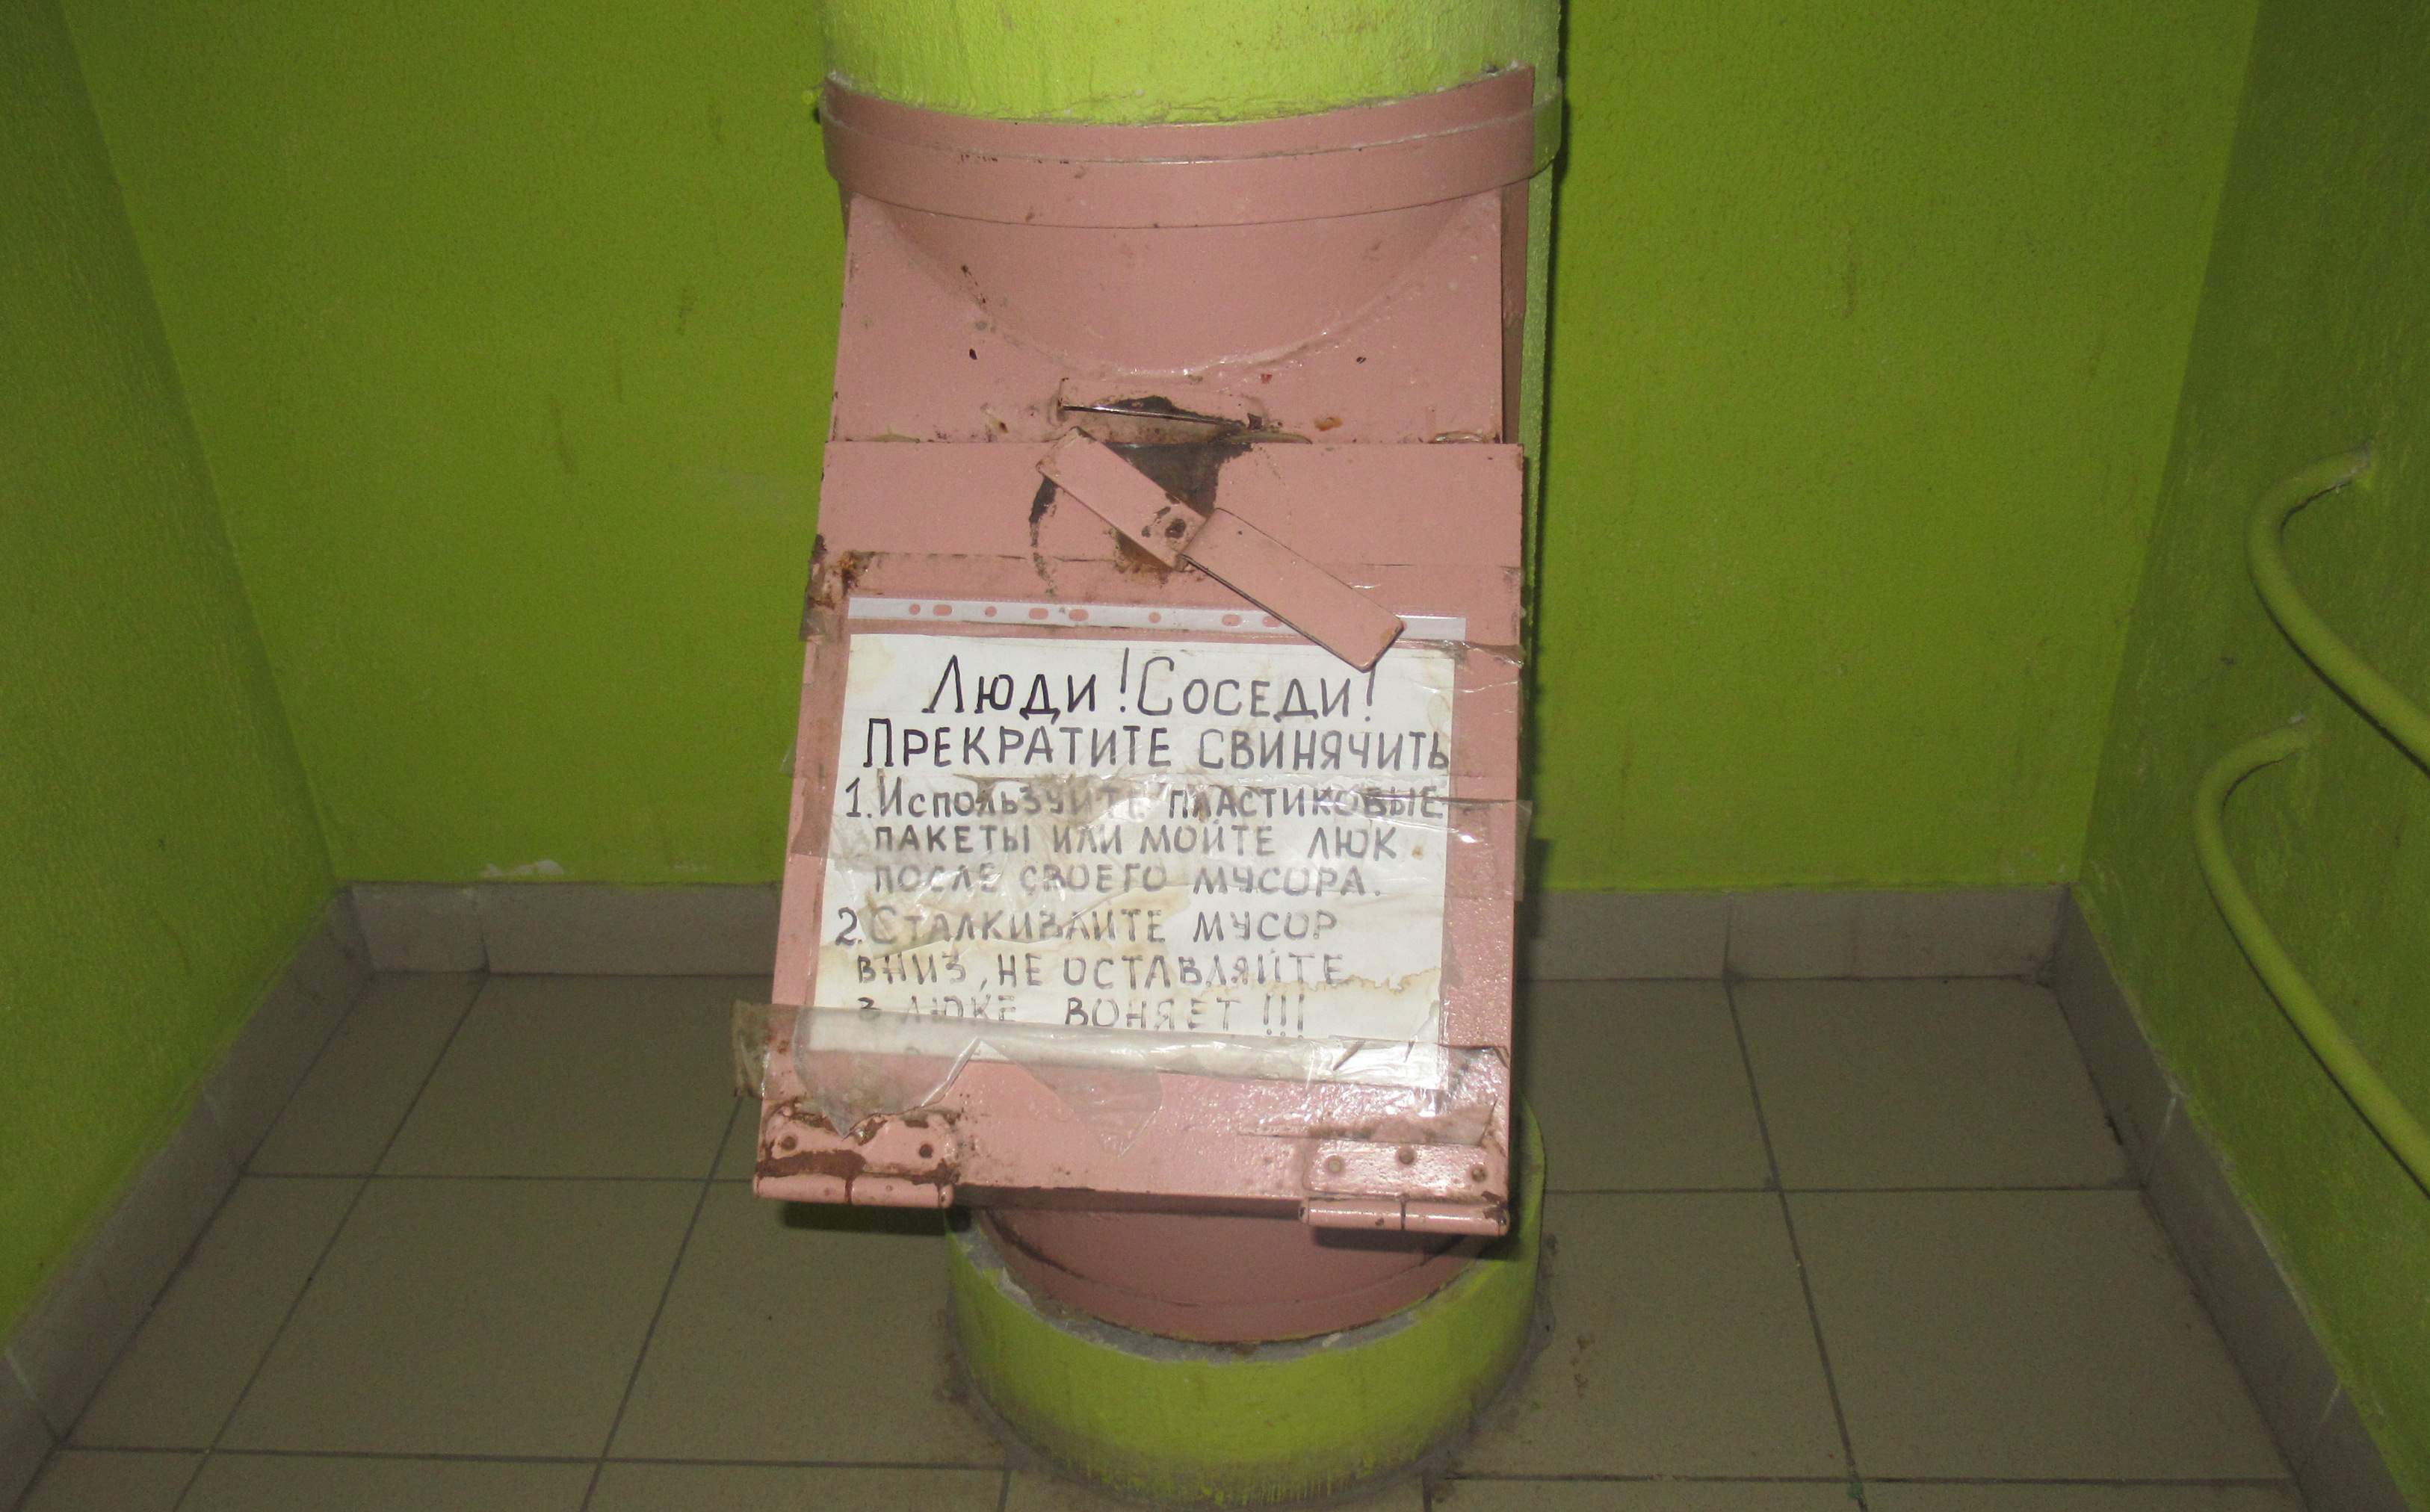 Люди! Соседи!
Прекратите свинячить
1. Используйте пластиковые
пакеты или мойте люк
после своего мусора.
2. Сталкивайте мусор
вниз, не оставляйте
в люке воняет!!!